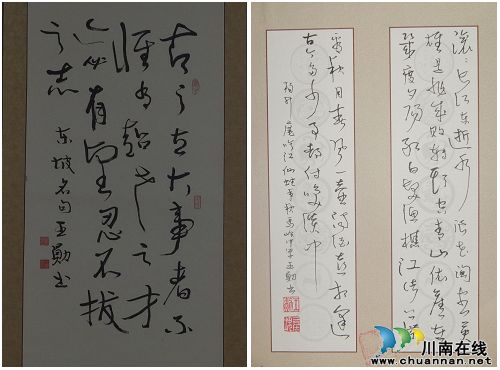 古之立大事者不
惟有超世之才
亦必有坚忍不拔
之志
东坡名句王勋书
滚滚长江东逝水浪花淘尽英
雄是非成败转头空青山依旧在
几度夕阳红白发渔樵江渚上惯
看秋月春风一壶浊酒喜相逢
古今多少事都付笑谈中
川南在线
www.chuannan.net